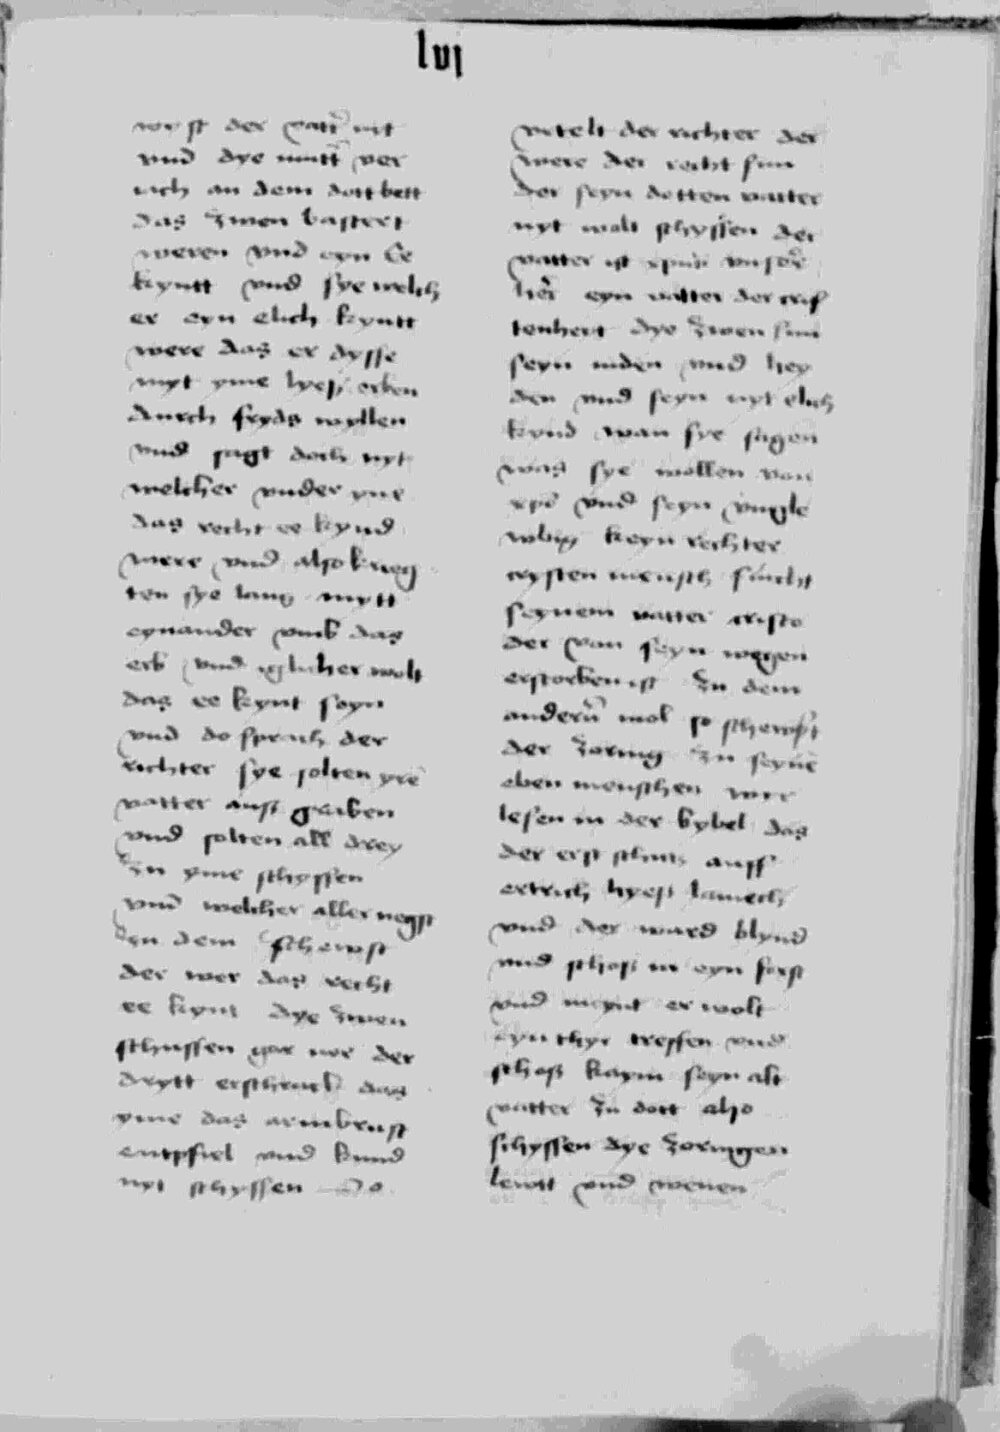 lvj
wyst der vatt nit
vnd dye mutt ver
iach an dem dottbett
das zwen bastert
weren vnd eyn Ee
kyntt vnd sye welch
er eyn elich kyntt
were das er dysse
myt yme lyeß erben
durch frydß wyllen
vnd sagt doch nyt
welcher vnder yne
das recht ee kynd
were vnd also krieg
ten sye lang mytt
eynander vmb das
erb vnd iglicher wolt
das ee kynt seyn
vnd do sprach der
richter sye solten yrē
vatter auß graben
vnd solten all drey
zu yme schyssen
vnd welcher aller negst
zu dem schewst
der wer das recht
ee kynt dye zwen
schussen gar nor der
drytt erschrack das
yme das armbrust
entpfiel vnd kund
nyt schyssen do
vrtelt der richter der
were der recht sun
der seyn dotten vatter
nyt wolt schyssen der
vatter ist xpūs vnser
her eyn vatter der cris
tenheyt dye zwen sun
seyn iuden vnd hey
den vnd seyn nyt elich
kynd wan sye sagen
was sye wollen von
xpō vnd seyn vngle
wbig keyn rechter
crysten mensch flucht
seynem vatter cristo
der von seyn wegen
erstorben ist Zu dem
andern mol so schewst
der zornig zu seynē
eben menschen wir
lesen in der bybel das
der erst schutz auff
ertrich hyeß lamech
vnd der ward blynd
vnd schoß in eyn forst
vnd meynt er wolt
eyn thyr treffen vnd
schoß kaym seyn alt
vatter zu dott also
schyssen dye zornigen
lewtt vnd wenen